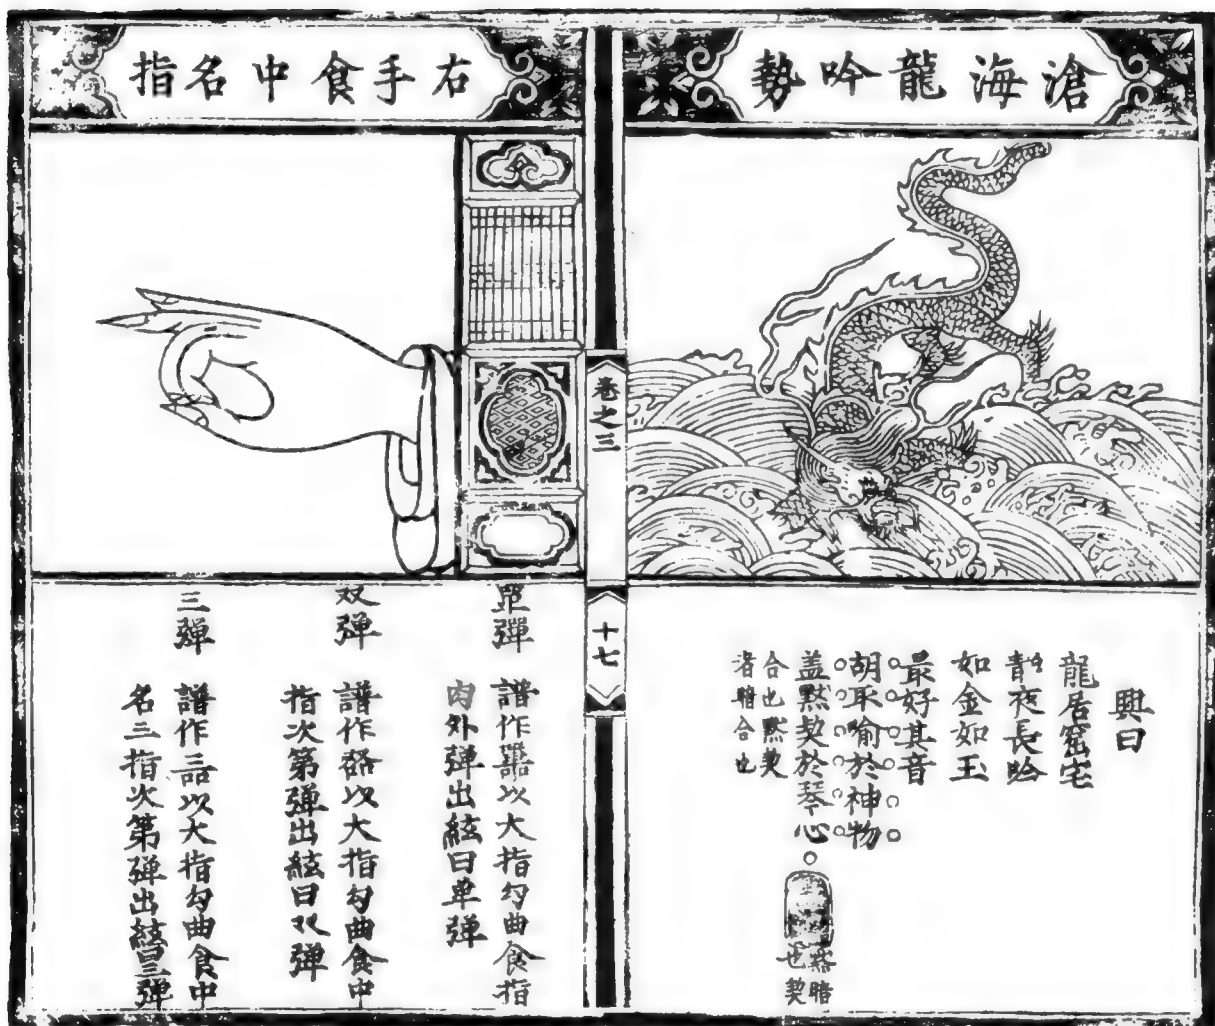 滄海龍吟勢
興曰
龍居窟宅
靜夜長吟
如金如玉
最好其音
胡取喻於神物
盖黙契於琴心
合也黙契
者暗合也
卷之三
十七
右手食中名指
單彈
譜作 以大指勾曲食指
肉外弹出絃曰单弹
双弹
譜作 以大指勾曲食中
指次第弹出絃曰双弹
三弹
譜作 以大指勾曲食中
名三指次第弹出絃曰三弹